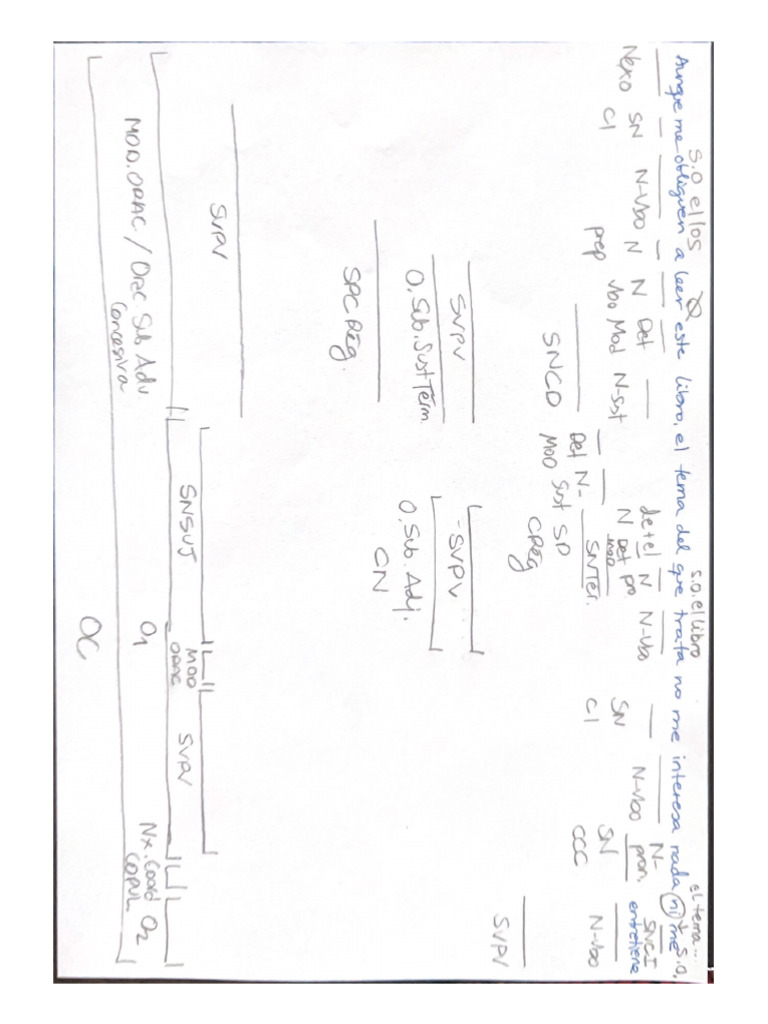 S.O ellos Ø S.O. el libro el tema... S.O.
Aunque me obliguen a leer este libro, el tema del que trata no me interesa nada ni me
y
SNCI
entretiene
Nexo SN N-Vbo N N Det N-Sust de+el N N-Vbo SN N-Vbo N-
CI prep Vbo Mod N Det pro CI pron.
MOD
Det N- SNTér. SN N-Vbo
MOD Sust SP CCC
SNCD CReg
SVPV
SVPV -SVPV
O.Sub.Sust Térm. O.Sub.Adj.
CN
SPC Rég.
SVPV SNSUJ MOD SVPV
ORAC
MOD.ORAC./Orac Sub Adv O1 Nx.Coord O2
Concesiva COPUL.
OC